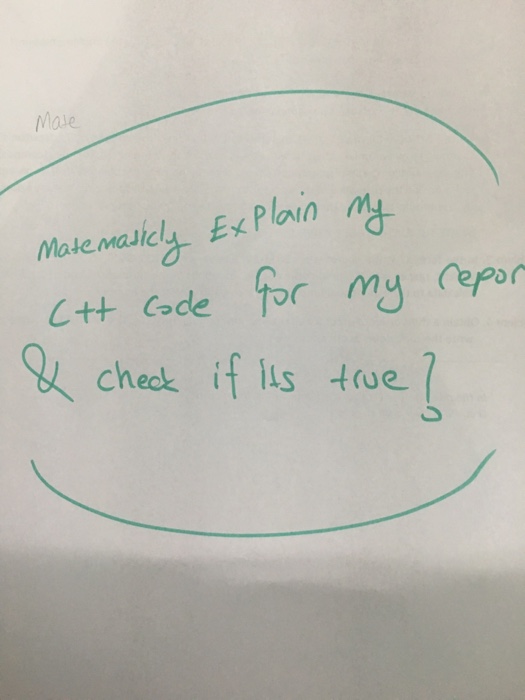 Mate
Matematicly Explain My
C++ Code for my repor
& check if its true?